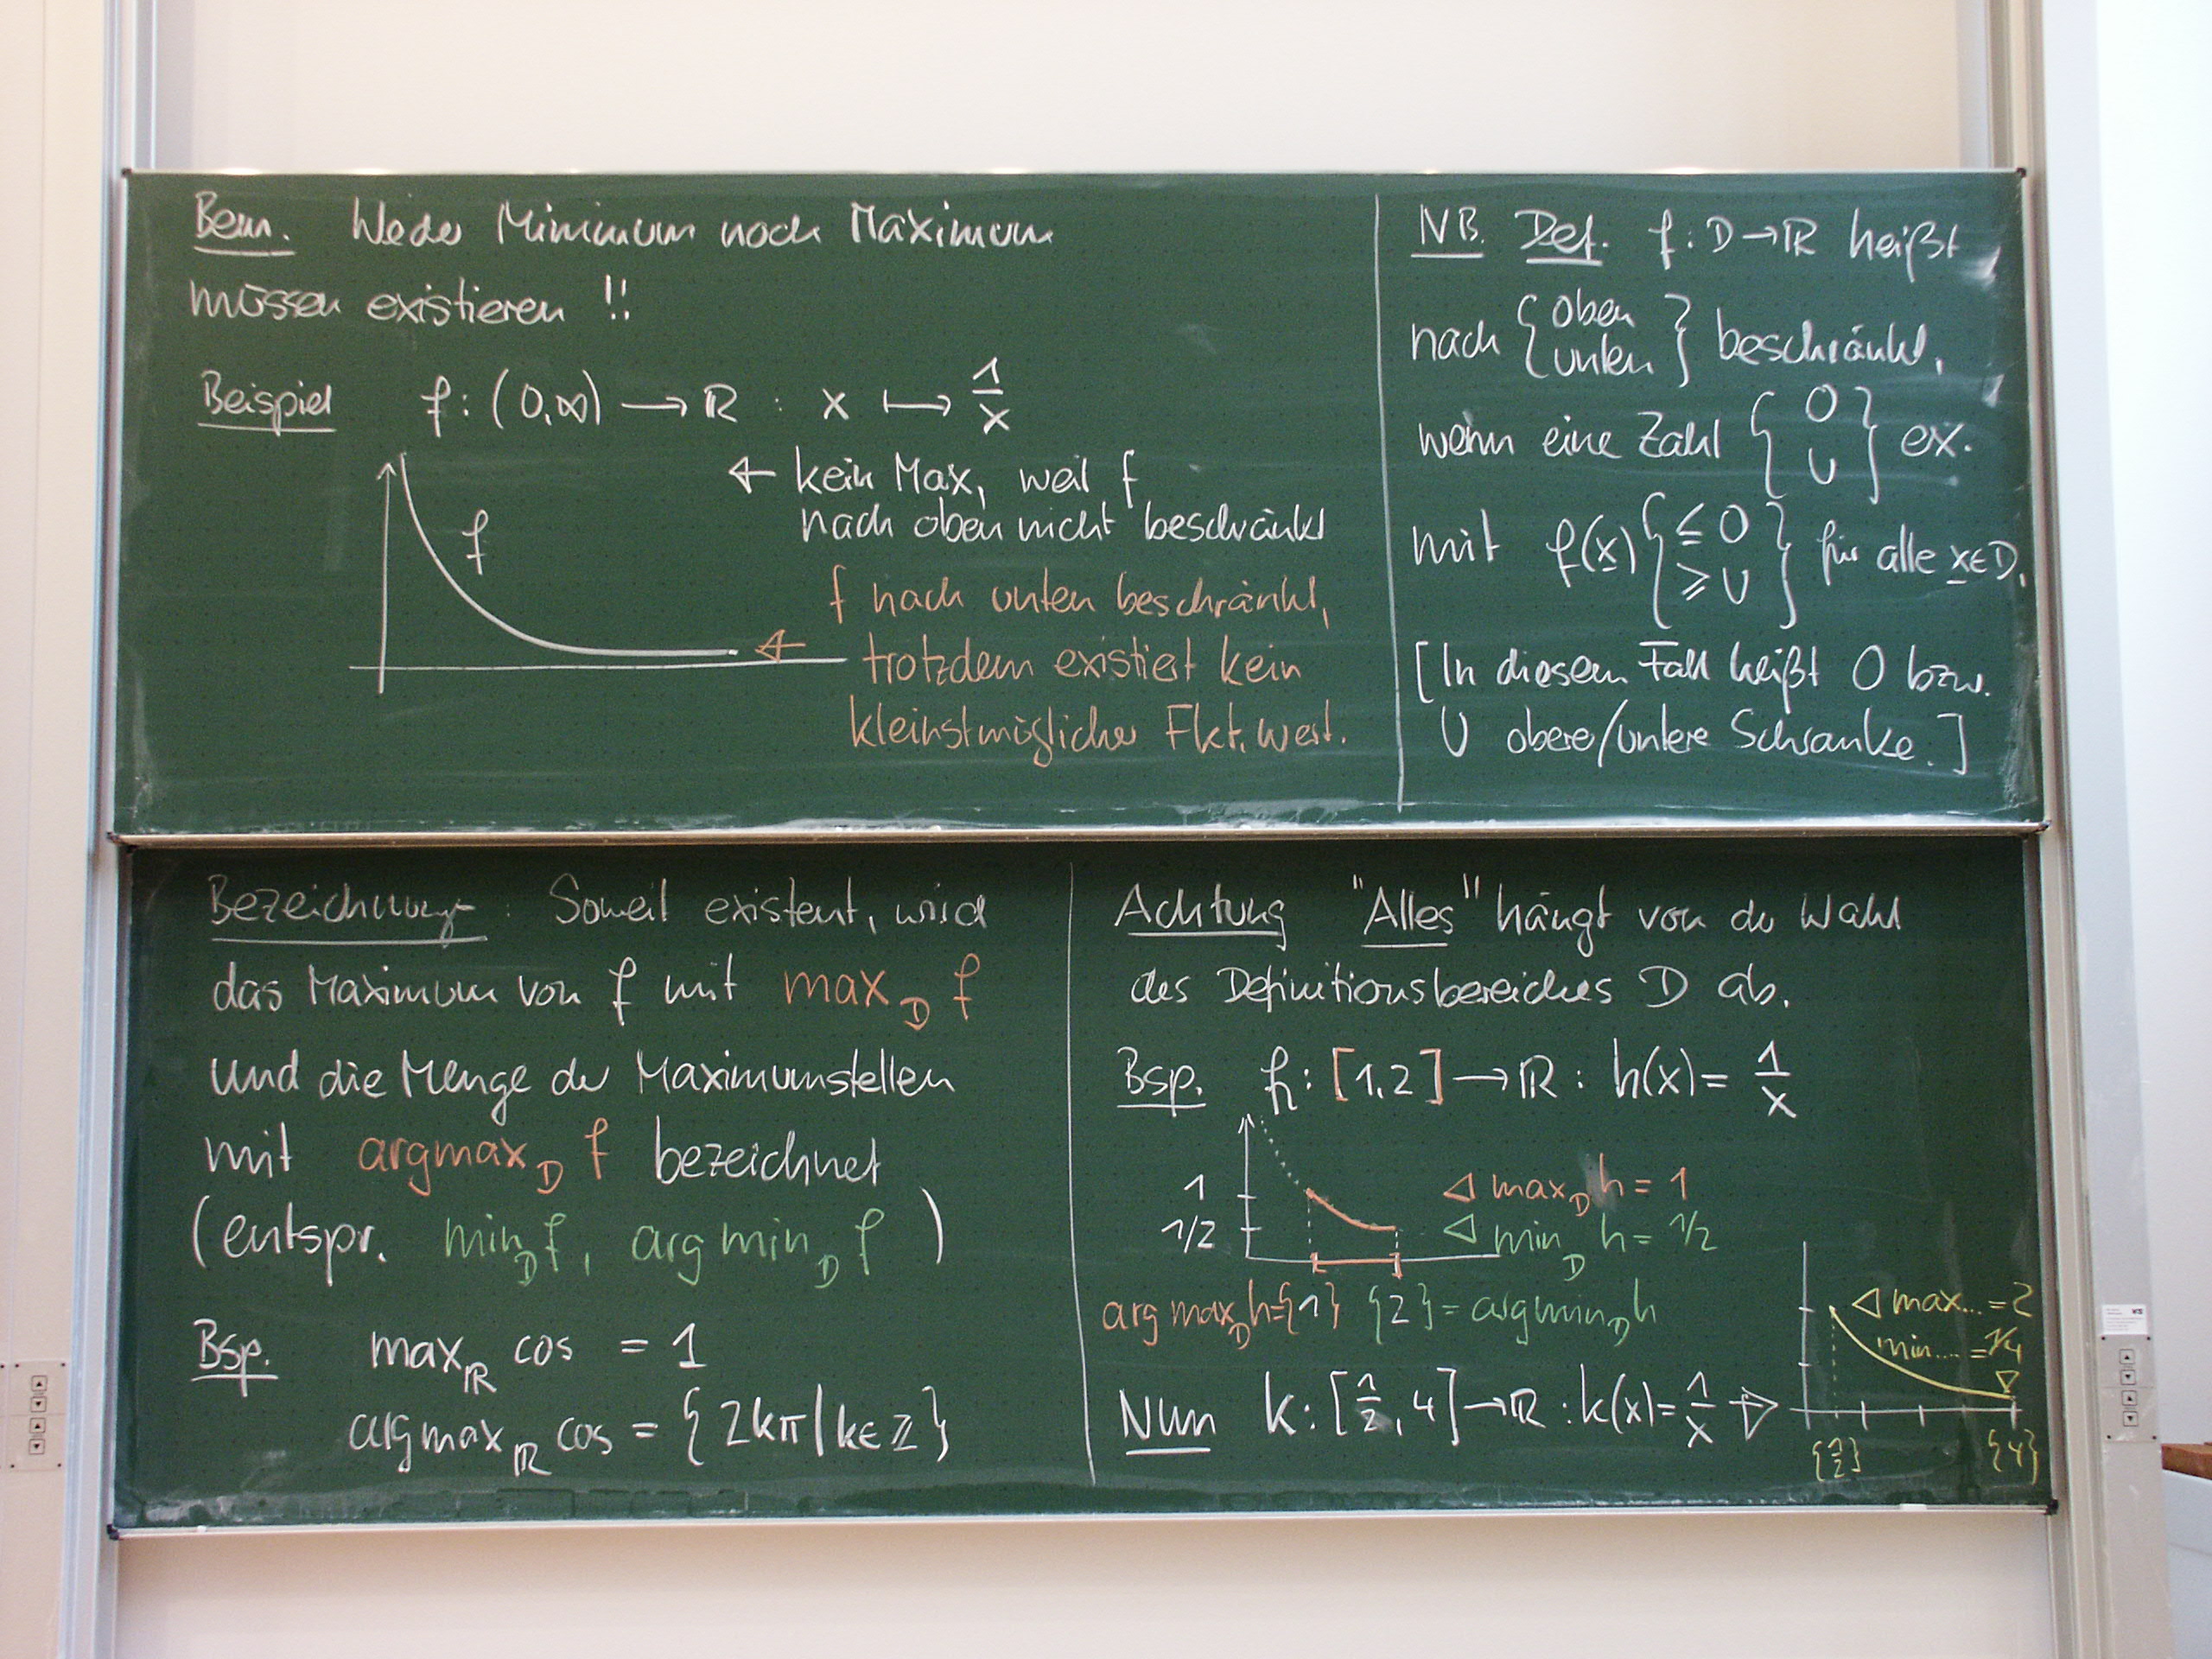 Bem. Weder Minimum noch Maximum
müssen existieren !!
Beispiel f: (0,∞) → ℝ : x ↦ 1/x
f
← kein Max, weil f
nach oben nicht beschränkt
f nach unten beschränkt,
← trotzdem existiert kein
kleinstmöglicher Fkt.wert.
NB. Def. f: D → ℝ heißt
nach { oben / unten } beschränkt,
wenn eine Zahl { O / U } ex.
mit f(x) { ≤ O / ≥ U } für alle x ∈ D.
[In diesem Fall heißt O bzw.
U obere/untere Schranke.]
Bezeichnung: Soweit existent, wird
das Maximum von f mit max_D f
und die Menge der Maximumstellen
mit argmax_D f bezeichnet
(entspr. min_D f, arg min_D f )
Bsp. max_ℝ cos = 1
argmax_ℝ cos = {2kπ | k ∈ ℤ}
Achtung "Alles" hängt von der Wahl
des Definitionsbereiches D ab.
Bsp. h: [1,2] → ℝ : h(x) = 1/x
1 ◁ max_D h = 1
1/2 ◁ min_D h = 1/2
arg max_D h = {1} {2} = argmin_D h
Nun k: [1/2, 4] → ℝ : k(x) = 1/x
◁ max... = 2
min.... = 1/4
{1/2} {4}